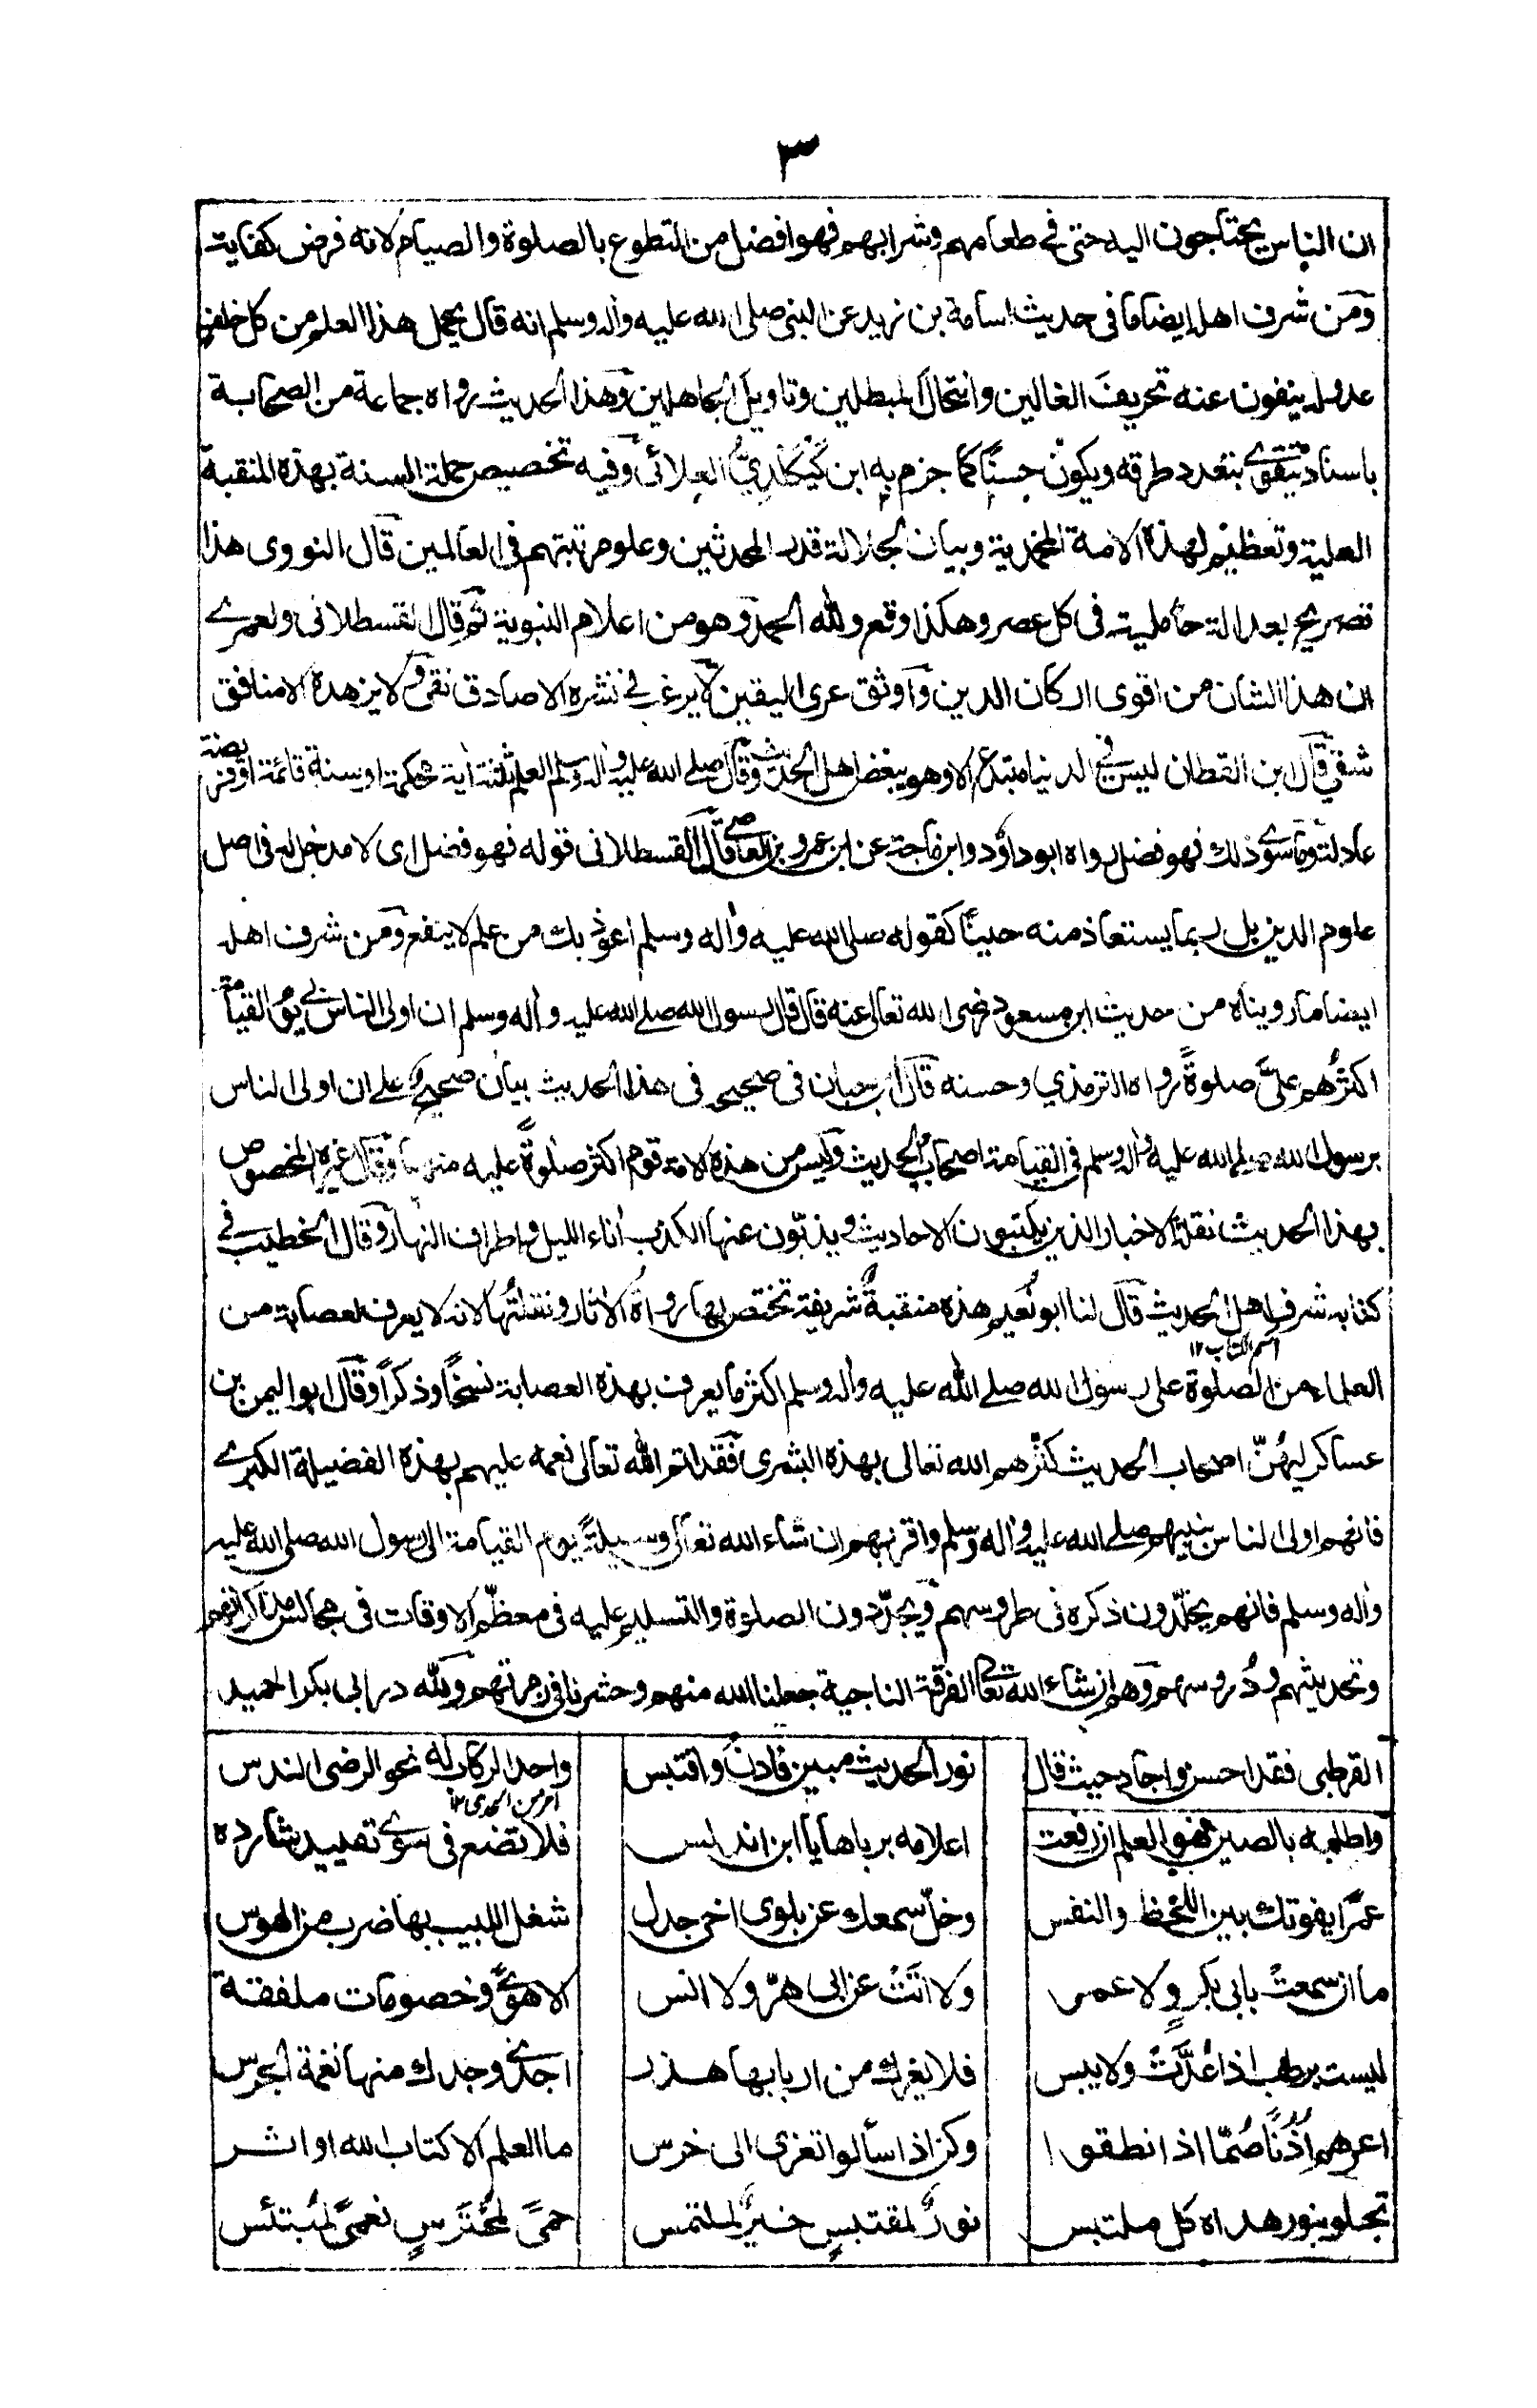 ٣
ان الناس يحتاجون اليه حتى في طعامهم وشرابهم فهو افضل من التطوع بالصلوة والصيام لانه فرض كفاية
ومن شرف اهله ايضا ما في حديث اسامة بن زيد عن النبي صلى الله عليه واله وسلم انه قال يحمل هذا العلم من كل خلف
عدوله ينفون عنه تحريف الغالين وانتحال المبطلين وتاويل الجاهلين وهذا الحديث رواه جماعة من الصحابة
باسناد يتقوى بتعدد طرقه ويكون حسنًا كما جزم به ابن كيكلدي العلائي وفيه تخصيص حملة السنة بهذه المنقبة
العلية وتعظيم لهذه الامة المحمدية وبيان لجلالة قدر المحدثين وعلو مرتبتهم في العالمين قال النووي هذا
تصريح بعدالة حامليه في كل عصر وهكذا وقع ولله الحمد وهو من اعلام النبوية ثم قال القسطلاني ولعمرے
ان هذا الشان من اقوى اركان الدين واوثق عرى اليقين لا يرغب في نشره الا صادق تقي ولا يزهده الا منافق
شقي قال ابن القطان ليس في الدنيا مبتدع الا وهو يبغض اهل الحديث وقال صلے الله عليه واله وسلم العلم ثلثة اية محكمة او سنة قائمة او فريضة
عادلة وما سوى ذلك فهو فضل رواه ابو داود وابن ماجة عن ابن عمرو بن العاص قال القسطلاني قوله فهو فضل اى لا مدخل له في اصل
علوم الدين بل ربما يستعاذ منه حينًا كقوله صلى الله عليه واله وسلم اعوذ بك من علم لا ينفع ومن شرف اهله
ايضا ما رويناه من حديث ابن مسعود رضى الله تعالى عنه قال قال رسول الله صلے الله عليه واله وسلم ان اولى الناس بي يوم القيامة
اكثرُهم علىَّ صلوةً رواه الترمذي وحسنه قال ابن حبان في صحيحه في هذا الحديث بيان صحيح على ان اولى الناس
برسول الله صلے الله عليه واله وسلم في القيامة اصحاب الحديث وليس من هذه الامة قوم اكثر صلوةً عليه منهم وقال غيره المخصوص
بهذا الحديث نقلة الاخبار الذين يكتبون الاحاديث ويذبّون عنها الكذب اناء الليل واطراف النهار وقال الخطيب في
كتابه شرف اهل الحديث قال لنا ابو نُعيم هذه منقبةٌ شريفة تختص بها رواةُ الاثار ونقلتُها لانه لا يعرف لعصابة من
اسم الكتاب ١٢
العلماء من الصلوة على رسول الله صلے الله عليه واله وسلم اكثر ما يعرف بهذه العصابة نسخًا وذكرًا وقال ابو اليمن بن
عساكر ليهنّ اصحاب الحديث كثرهم الله تعالى بهذه البشرى فقد اتم الله تعالى نعمه عليهم بهذه الفضيلة الكبرے
فانهم اولى الناس بنبيهم صلے الله عليه واله وسلم واقربهم ان شاء الله تعالى وسيلةً يوم القيامة الى رسول الله صلى الله عليه
واله وسلم فانهم يخلّدون ذكره في طروسهم ويجدّدون الصلوة والتسليم عليه في معظم الاوقات في مجالس مذاكراتهم
وتحديثهم ودُروسهم وهم ان شاء الله تعالى الفرقة الناجية جعلنا الله منهم وحشرنا في زمرتهم ولله در ابي بكر الحميد
القرطبي فقد احسن واجاد حيث قال نور الحديث مبين فادنُ واقتبس واحد الركاب له نحو الرضى الندس
امر من الحدى ١٢
واطلبه بالصين فهو العلم ان رفعت اعلامه برباها يا ابن اندلس فلا تضع في سوى تقييد شارده
عمرًا يفوتك بين اللحظ والنفس وخلّ سمعك عن بلوى اخى جدل شغل اللبيب بها ضرب من الهوس
ما ان سمعتْ بابى بكر ولا عمر ولا اتتْ عن ابى هرّ ولا انس الا هوًى وخصومات ملفقة
ليست برطب اذا عُدّتْ ولا يبس فلا يغرك من اربابها هذر اجدى وجدك منها نغمة الجرس
اعرهم اُذُنًا صُمّا اذا نطقوا وكن اذا سألوا تعزى الى خرس ما العلم الا كتاب الله او اثر
تجلو بنور هداه كل ملتبس نورٌ لمقتبسٍ خيرٌ لملتمس حمىً لمُحترسٍ نعمىً لمُبتئس